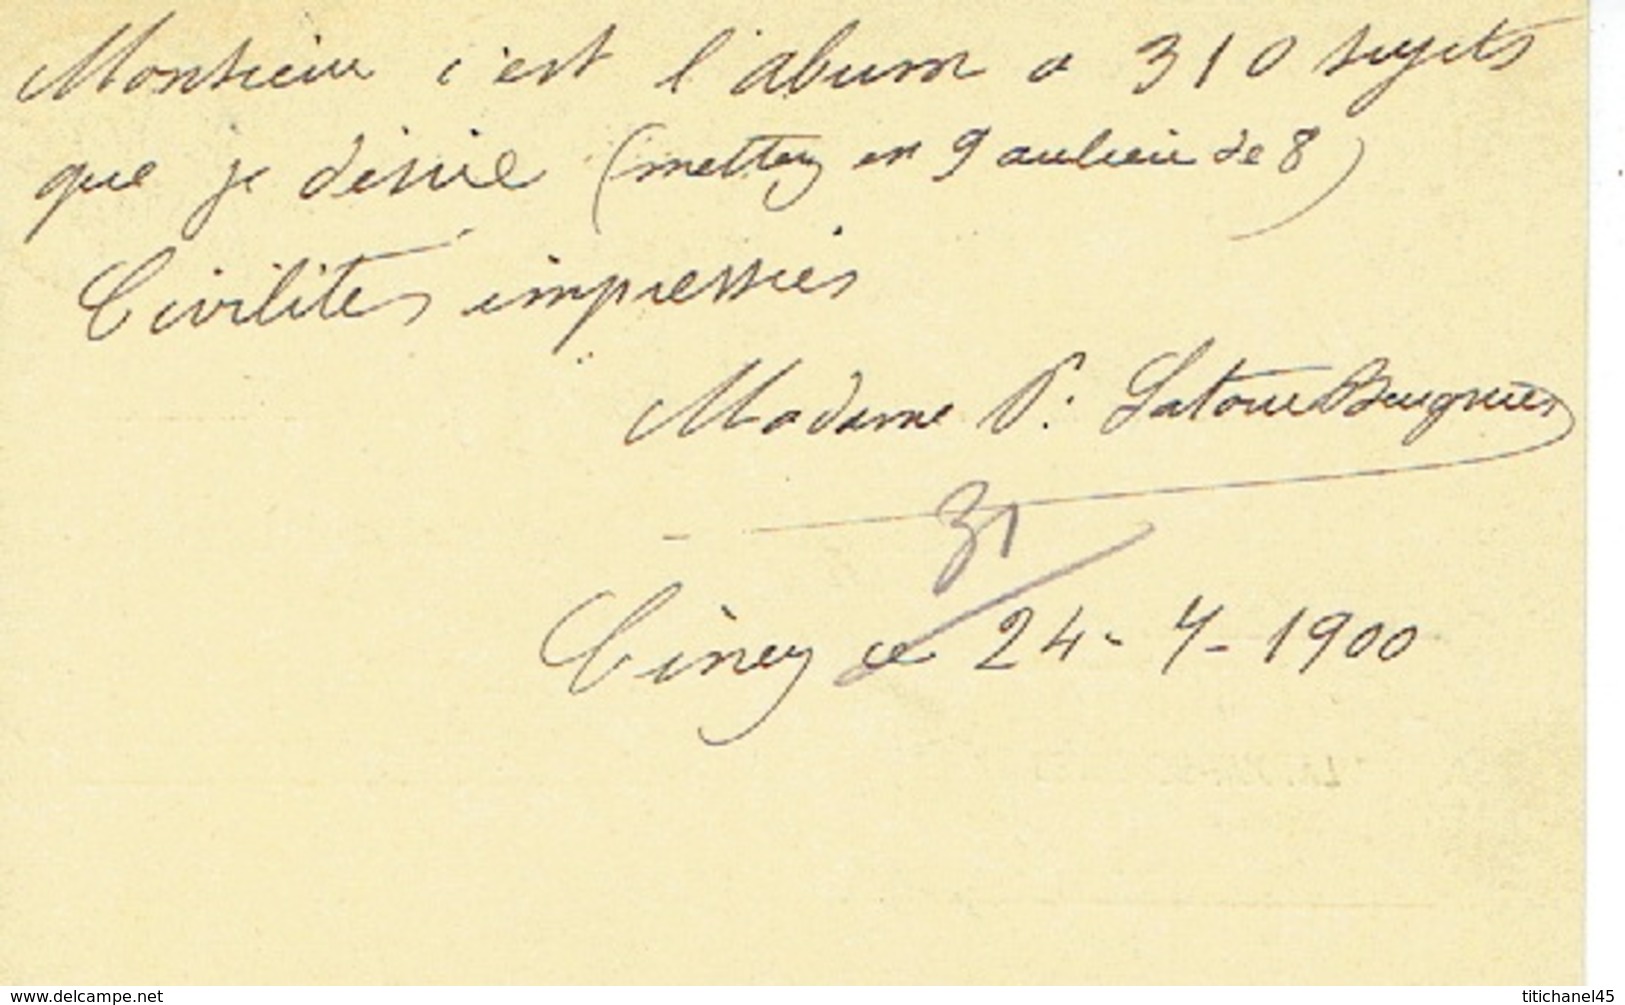 Monsieur c'est l'abum a 310 sujets
que je désire (mettez en 9 aulieu de 8)
Civilités impressées
Madame P. Latour Bugnies
31
Ciney ce 24-7-1900
www.delcampe.net
titichanel45